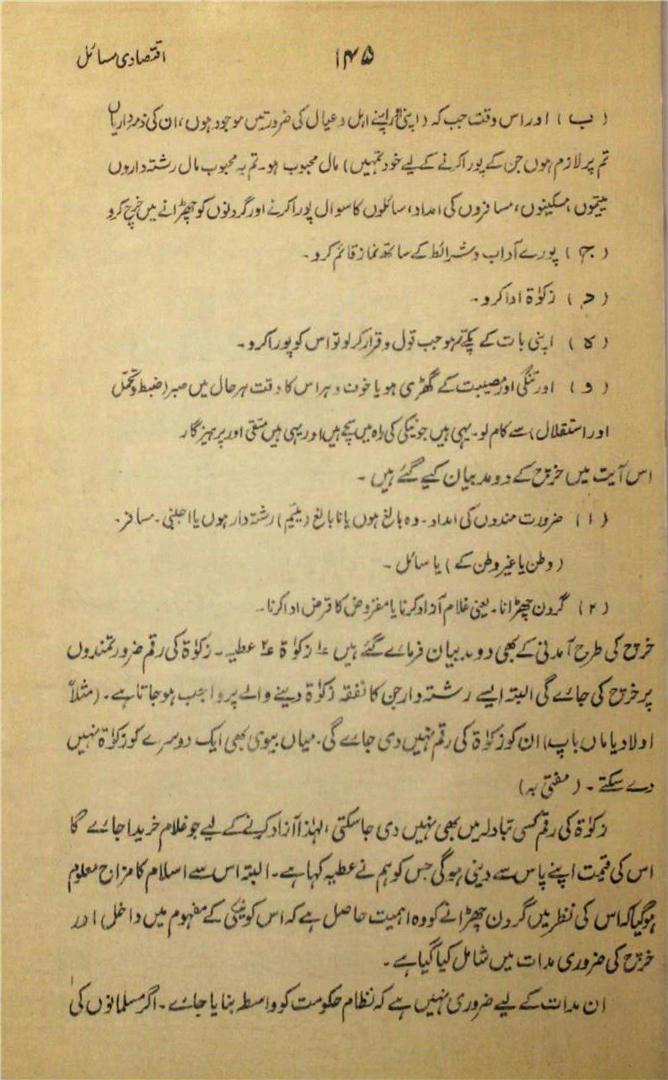 ۱۴۵ اقتصادی مسائل
(ب) اور اس وقت جب کہ (اپنی اور اپنے اہل و عیال کی ضرورتیں موجود ہوں، ان کی ذمہ داریاں
تم پر لازم ہوں جن کے پورا کرنے کے لیے خود تمہیں) مال محبوب ہو۔ تم یہ محبوب مال رشتہ داروں
یتیموں، مسکینوں، مسافروں کی امداد، سائلوں کا سوال پورا کرنے اور گردنوں کو چھڑانے میں خرچ کرو
(ج) پورے آداب و شرائط کے ساتھ نماز قائم کرو۔
(د) زکوٰۃ ادا کرو۔
(ہ) اپنی بات کے پکے ہو جب قول و قرار کر لو تو اس کو پورا کرو۔
(و) اور تنگی اور مصیبت کے گھڑی ہو یا خوف و ہراس کا وقت ہر حال میں صبر (ضبط و تحمل
اور استقلال) سے کام لو۔ یہی ہیں جو نیکی کی راہ میں سچے ہیں اور یہی ہیں متقی اور پرہیزگار
اس آیت میں خرچ کے دو مد بیان کیے گئے ہیں۔
(۱) ضرورت مندوں کی امداد۔ وہ بالغ ہوں یا نابالغ (یتیم) رشتہ دار ہوں یا اجنبی۔ مسافر۔
(وطن یا غیر وطن کے) یا سائل۔
(۲) گردن چھڑانا۔ یعنی غلام آزاد کرنا یا مقروض کا قرض ادا کرنا۔
خرچ کی طرح آمدنی کے بھی دو مد بیان فرمائے گئے ہیں ۱؎ زکوٰۃ ۲؎ عطیہ۔ زکوٰۃ کی رقم ضرورتمندوں
پر خرچ کی جائے گی البتہ ایسے رشتہ دار جن کا نفقہ زکوٰۃ دینے والے پر واجب ہو جاتا ہے۔ (مثلاً
اولاد یا ماں باپ) ان کو زکوٰۃ کی رقم نہیں دی جائے گی۔ میاں بیوی بھی ایک دوسرے کو زکوٰۃ نہیں
دے سکتے۔ (مفتیٰ بہ)
زکوٰۃ کی رقم کسی تبادلہ میں بھی نہیں دی جا سکتی، لہٰذا آزاد کرنے کے لیے جو غلام خریدا جائے گا
اس کی قیمت اپنے پاس سے دینی ہو گی جس کو ہم نے عطیہ کہا ہے۔ البتہ اس سے اسلام کا مزاج معلوم
ہو گیا کہ اس کی نظر میں گردن چھڑانے کو وہ اہمیت حاصل ہے کہ اس کو نیکی کے مفہوم میں داخل اور
خرچ کی ضروری مدات میں شامل کیا گیا ہے۔
ان مدات کے لیے ضروری نہیں ہے کہ نظام حکومت کو واسطہ بنایا جائے۔ اگر مسلمانوں کی